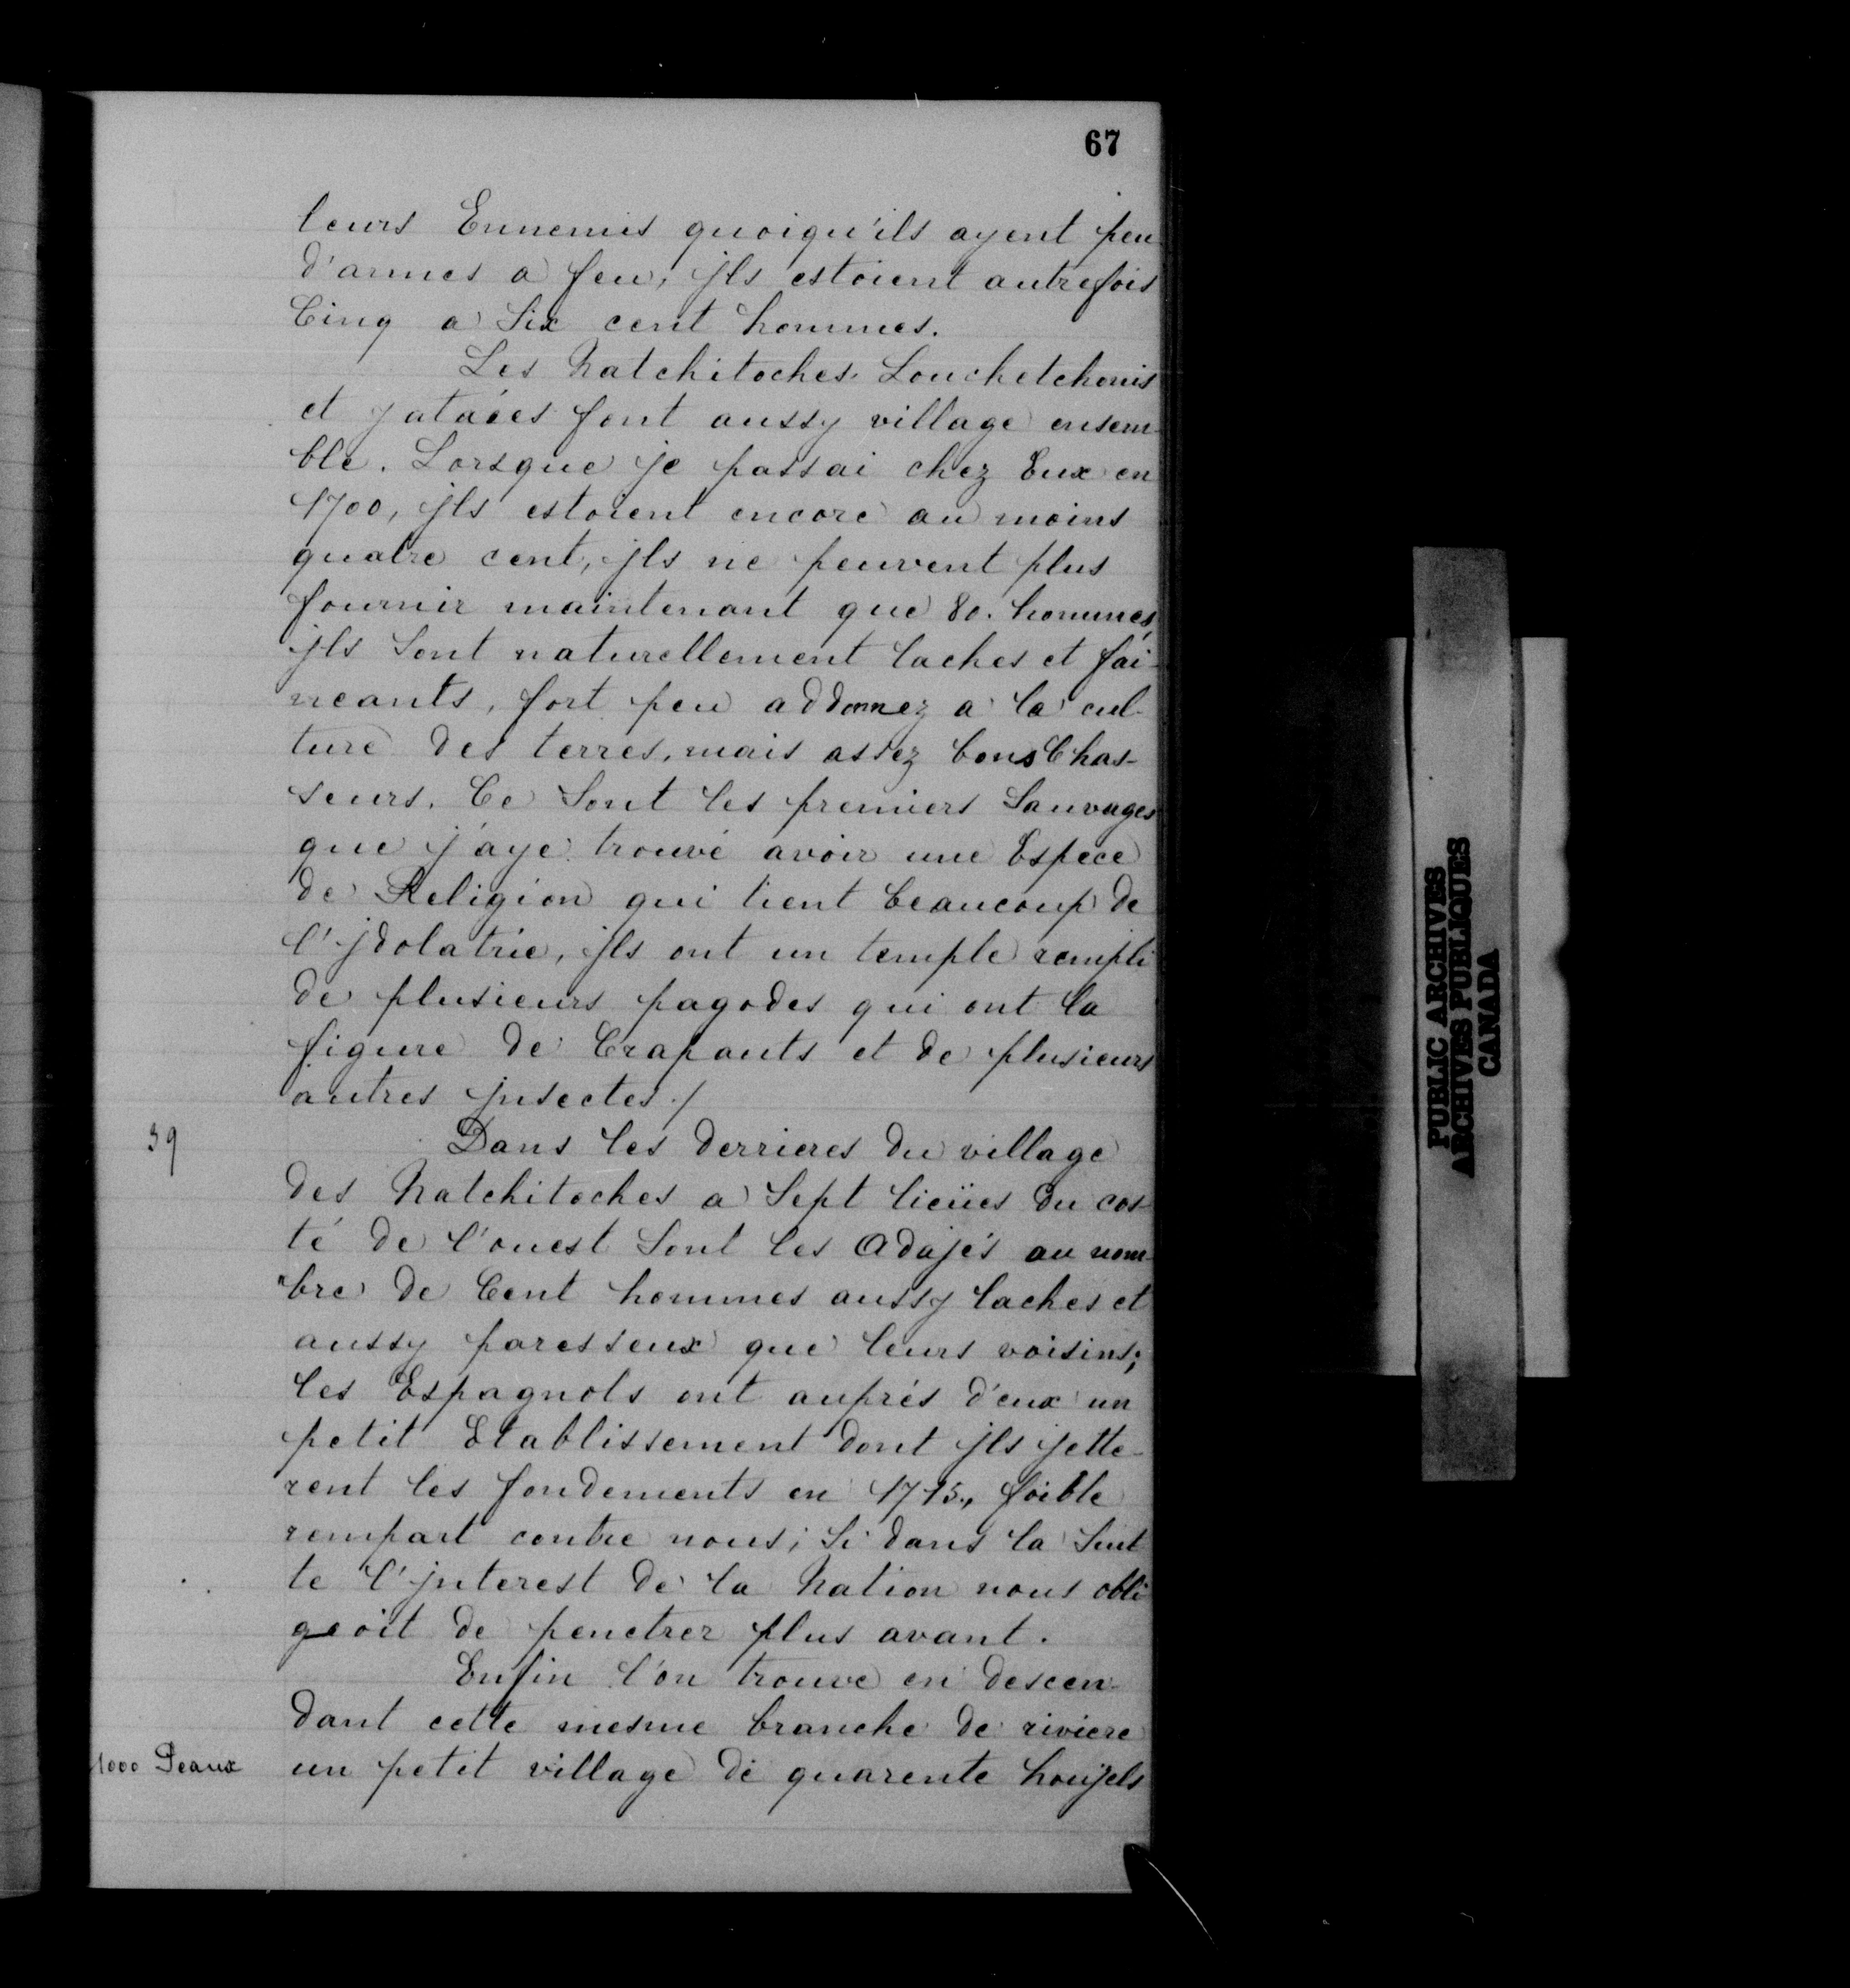 67
leurs Ennemis quoiqu'ils ayent peu
d'armes a feu, jls estoient autrefois
Cinq a Six cent hommes.
Les Natchitoches, Louchetchouis
et yatacés font aussy village ensem-
ble. Lorsque je passai chez Eux en
1700, jls estoient encore au moins
quatre cent, jls ne peuvent plus
fournir maintenant que 80. hommes,
jls Sont naturellement laches et fai-
neants, fort peu addonnez a la cul-
ture des terres, mais assez bons Chas-
seurs. Ce Sont les premiers Sauvages
que j'aye trouvé avoir une Espece
de Religion qui tient beaucoup de
l'jdolatrie, jls ont un temple rempli
de plusieurs pagodes qui ont la
figure de Crapauts et de plusieurs
autres jnsectes./
39
Dans les derrieres du village
des Natchitoches a Sept lieües du cos-
té de l'ouest Sont les Adajés au nom-
bre de Cent hommes aussy laches et
aussy paresseux que leurs voisins;
les Espagnols ont auprés d'eux un
petit Etablissement dont jls jette-
rent les fondements en 1715., foible
rempart contre nous; Si dans la Suit
te l'jnterest de la Nation nous obli
geoit de penetrer plus avant.
Enfin l'on trouve en descen-
dant cette mesme branche de riviere
1000 Peaux
un petit village de quarente houjels
PUBLIC ARCHIVES
ARCHIVES PUBLIQUES
CANADA